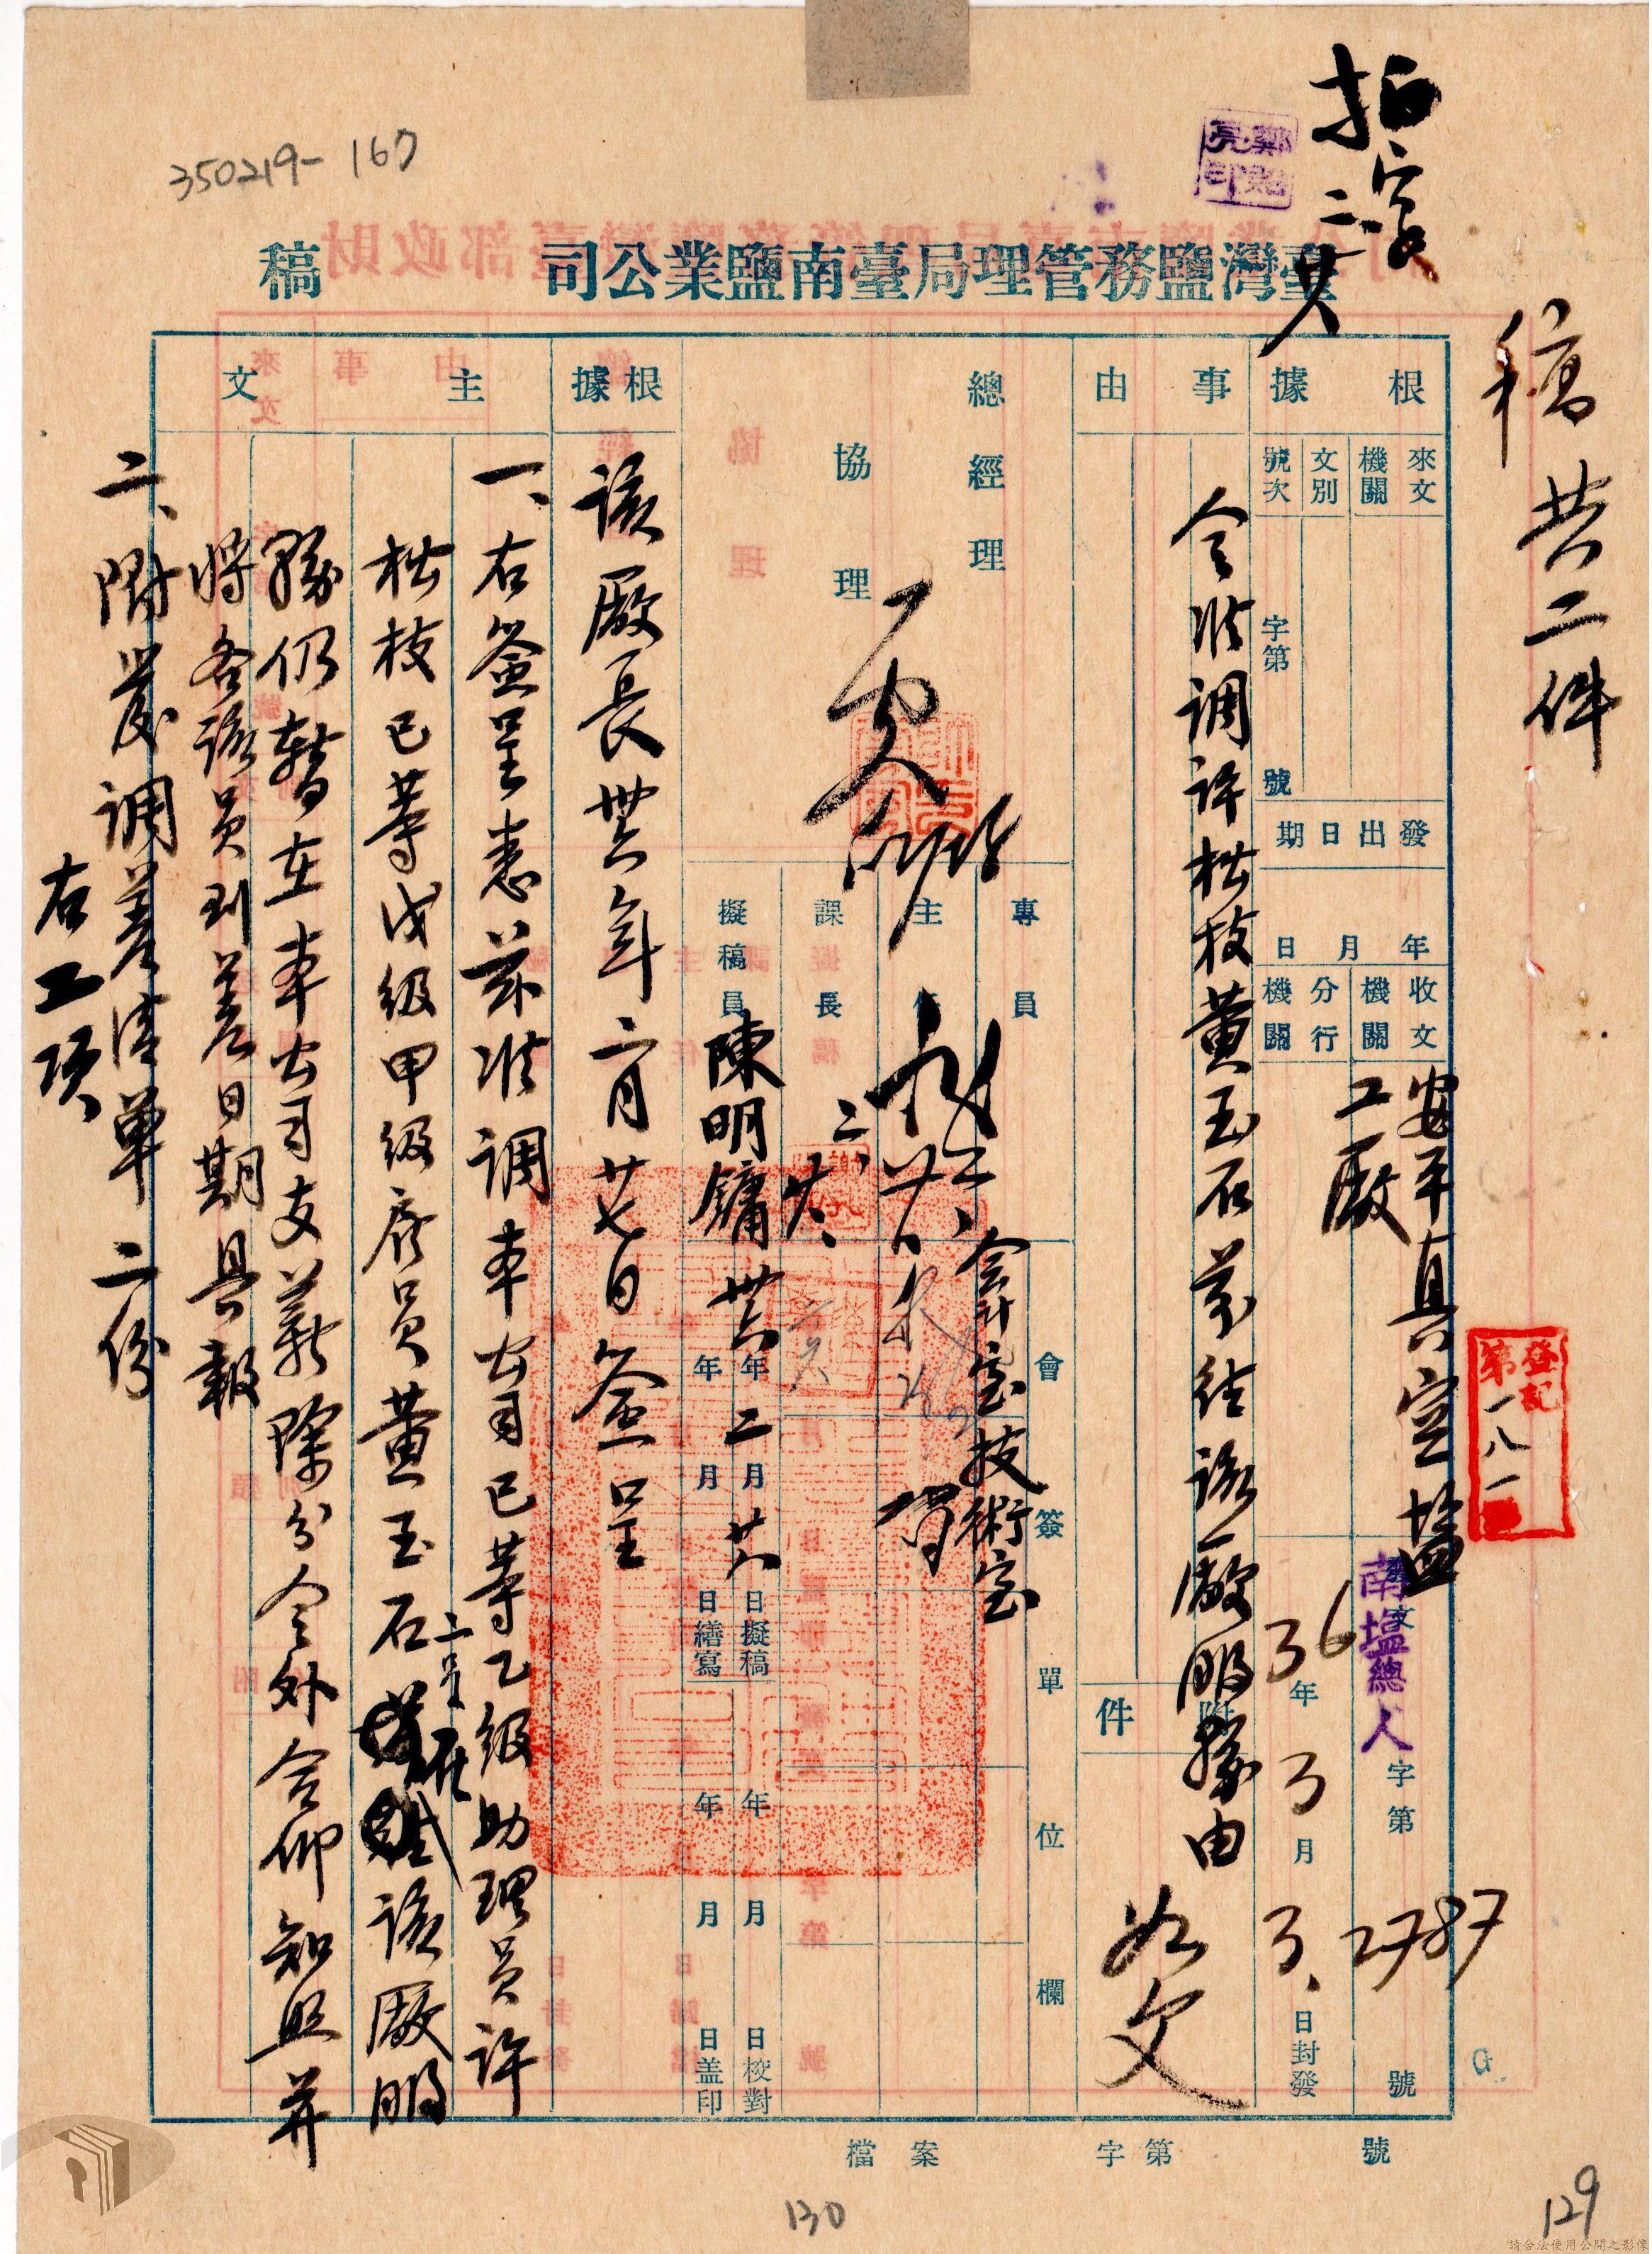 稿共二件
拍字
二、廿八
鄭貽亮印
350219-167
臺灣鹽務管理局臺南鹽業公司 稿
根據
來文機關
文別
號次
字第 號
發出日期
年 月 日
收文機關
安平真空鹽工廠
分行機關
登記第一八一
發文
南塩總人字第2787號
36年3月3日封發
事由
令准調許枨枝黃玉石前往該廠服務由
附件
如文
總經理
協理
專員
主任
課長
二、廿八
擬稿員
陳明鏞
會簽單位欄
会計室
技術室
卅六年二月廿八日擬稿
年 月 日繕寫
年 月 日校對
年 月 日盖印
根據
該廠長卅六年二月廿七日簽呈
主文
一、右簽呈悉茲准調本公司已等乙級助理員許
枝已等戊級甲級雇員黃玉石二員在該廠服
務仍暫在本公司支薪除分令外合仰知照并
將各該員到差日期具報
二、附發調差清單二份
右工項
檔案 字第 號
130
129
請合法使用公開之影像